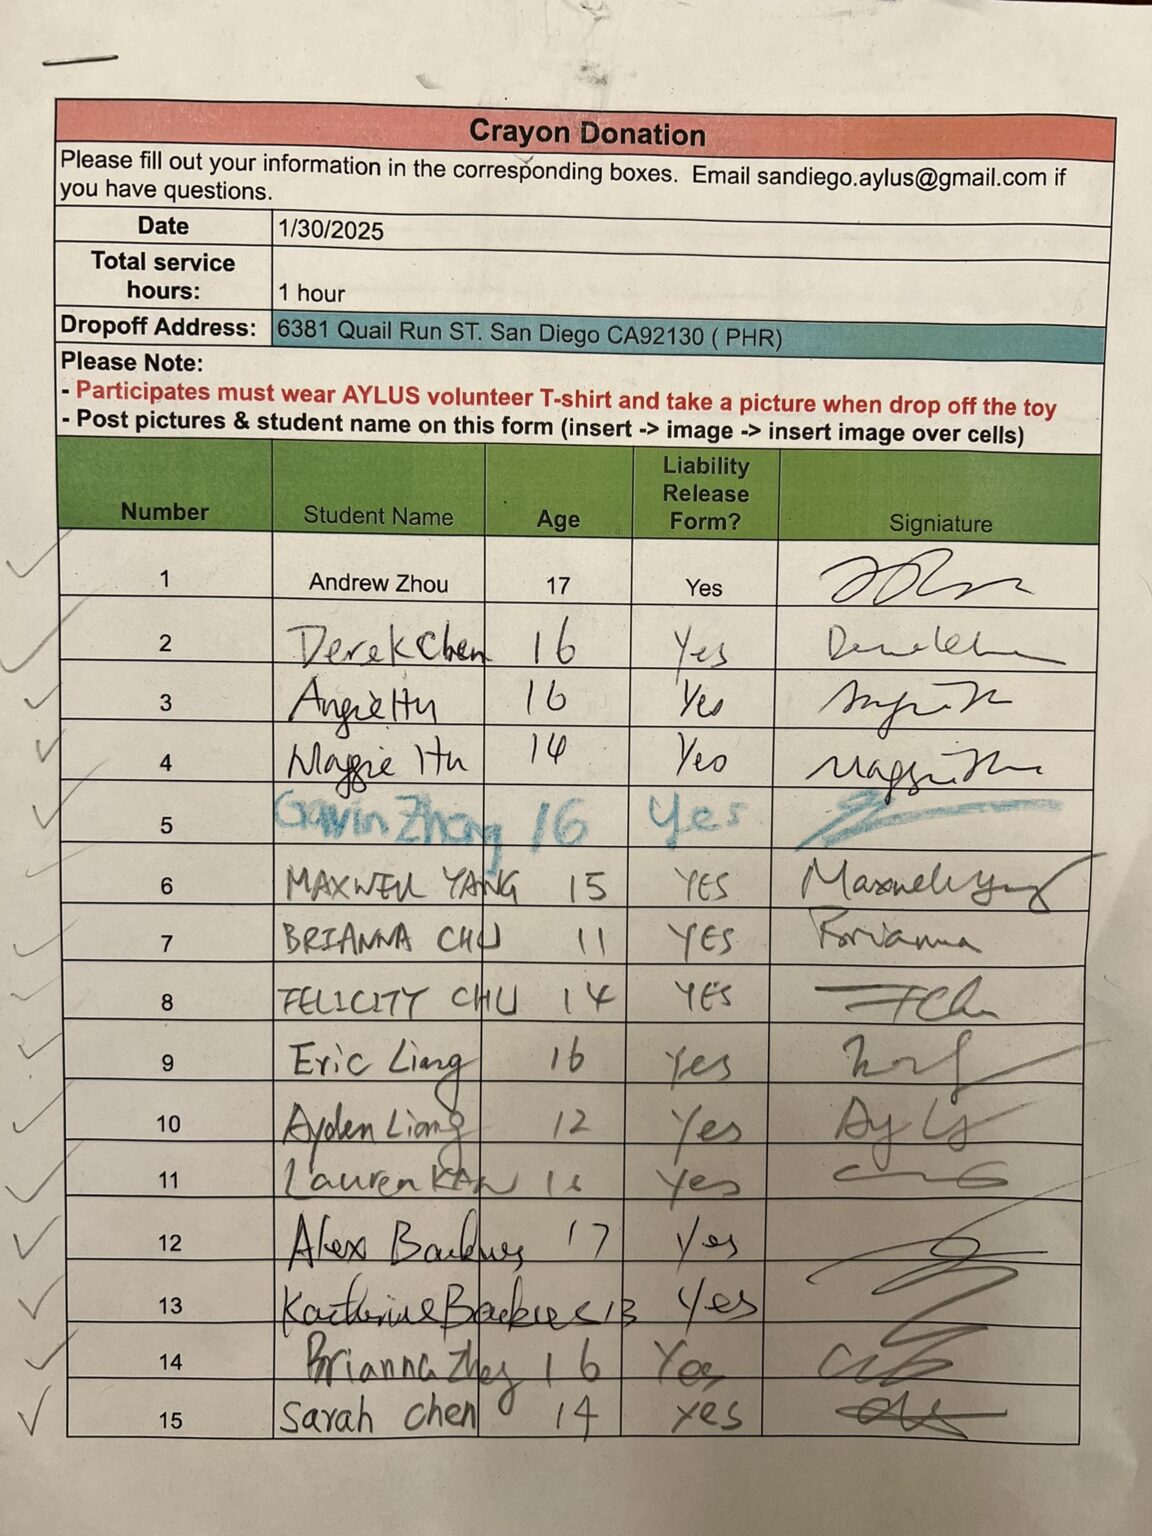 Crayon Donation
Please fill out your information in the corresponding boxes. Email sandiego.aylus@gmail.com if
you have questions.
Date 1/30/2025
Total service
hours: 1 hour
Dropoff Address: 6381 Quail Run ST. San Diego CA92130 ( PHR)
Please Note:
- Participates must wear AYLUS volunteer T-shirt and take a picture when drop off the toy
- Post pictures & student name on this form (insert -> image -> insert image over cells)
Number Student Name Age Liability Release Form? Signiature
1 Andrew Zhou 17 Yes
2 Derek Chen 16 Yes
3 Angie Hu 16 Yes
4 Maggie Hu 14 Yes Maggie Hu
5 Gavin Zhong 16 Yes
6 MAXWELL YANG 15 YES Maxwell Yang
7 BRIANNA CHU 11 YES Brianna
8 FELICITY CHU 14 YES FChu
9 Eric Liang 16 Yes
10 Ayden Liang 12 Yes
11 Lauren KAN Yes
12 Alex Backues 17 Yes
13 Katherine Backues 13 Yes
14 Brianna 16 Yes
15 Sarah Chen 14 Yes